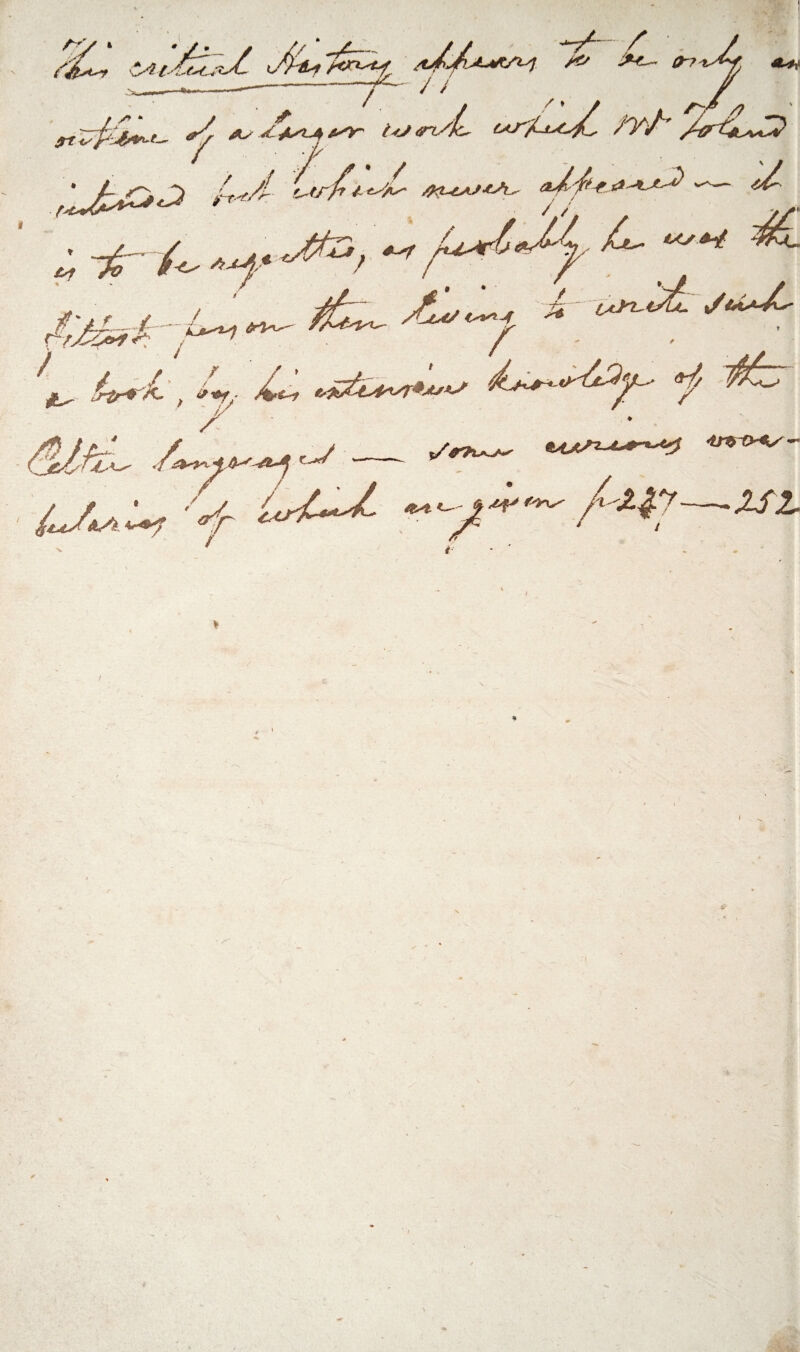 This critical History appears to be only an
outline of a larger work which Mr Toland
intended but which never appeared — it
is to be regretted, as probably he was the
fittest person then living to write such
a book, by his extensive knowledge of the
Celtic languages — some curious voca-
bularies of which are given p 227 — 252